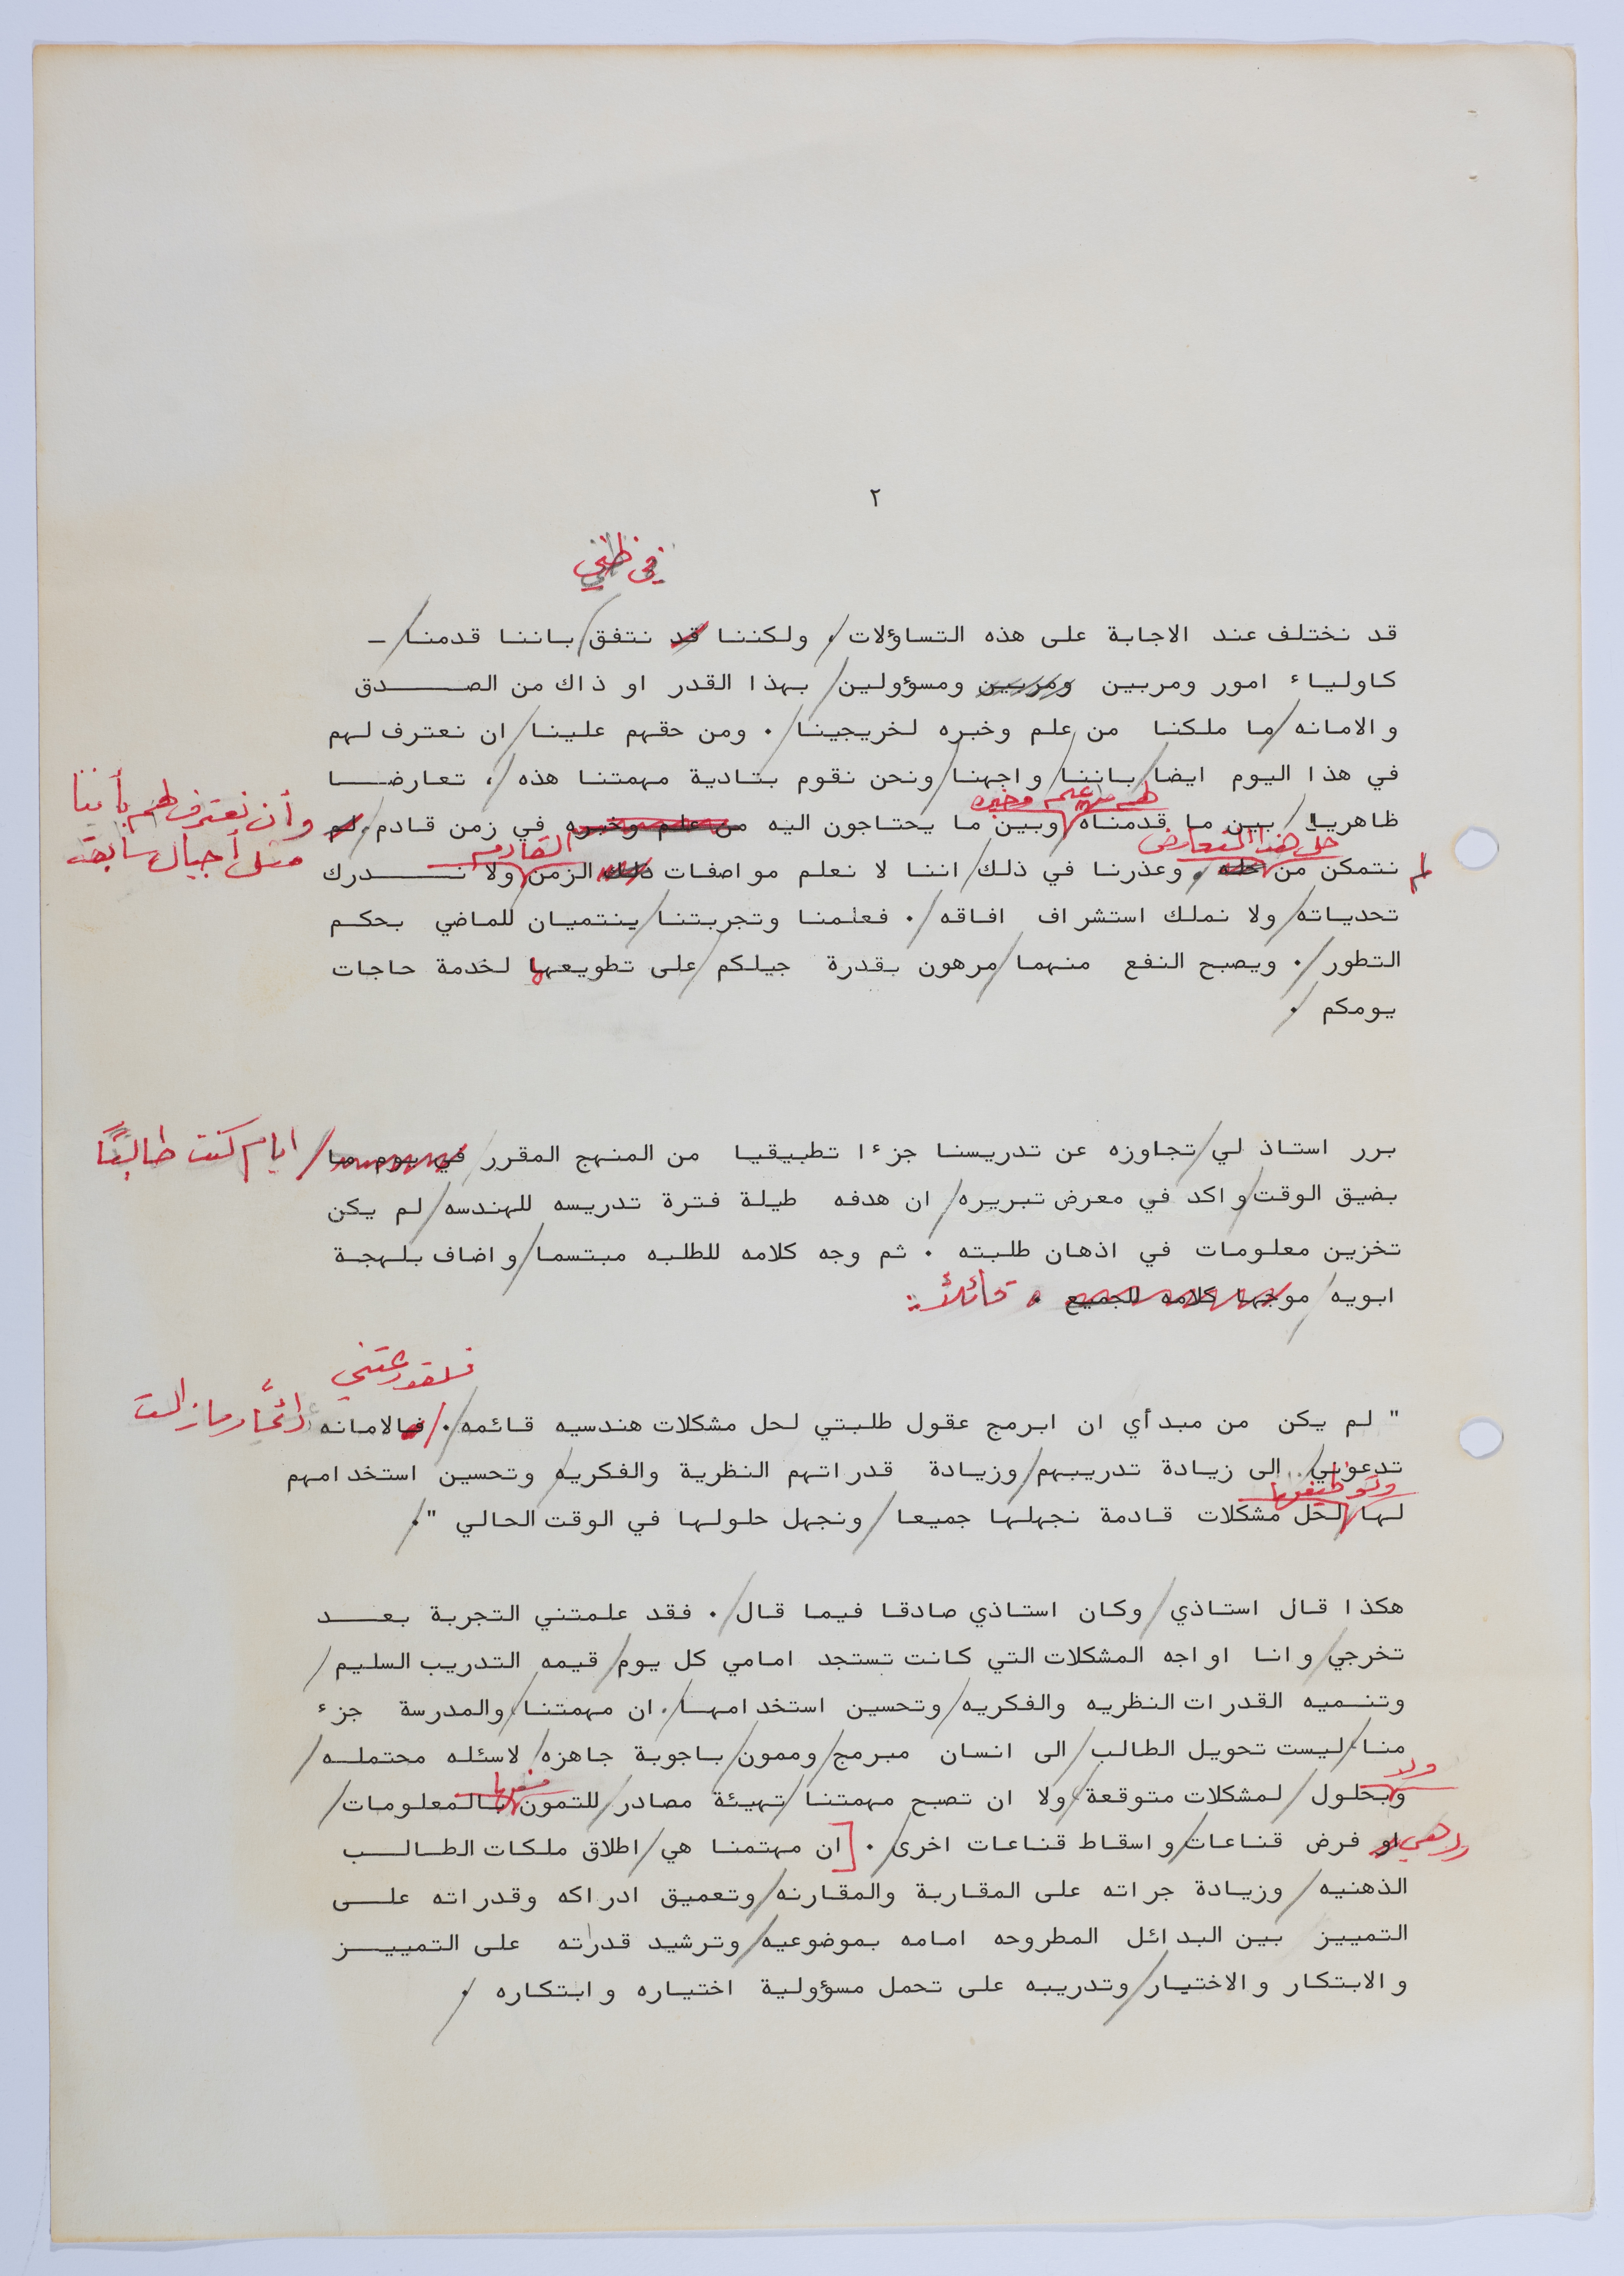 ٢
في ظني
قد نختلف عند الاجابة على هذه التساؤلات ، ولكننا قد نتفق باننا قدمنا –
كاولياء امور ومربين ومربين ومسؤولين بهذا القدر او ذاك من الصدق
والامانه ما ملكنا من علم وخبره لخريجينا . ومن حقهم علينا ان نعترف لهم
في هذا اليوم ايضا باننا واجهنا ونحن نقوم بتادية مهمتنا هذه ، تعارضا
وأن نعترف لهم بأننا
لهم من علم وخبره
ظاهريا بين ما قدمناه وبين ما يحتاجون اليه من علم وخبره في زمن قادم . لم
مثل أجيال سابقة
حل هذا التعارض
القادم
لم نتمكن من حله ، وعذرنا في ذلك اننا لا نعلم مواصفات ذلك الزمن ولا ندرك
تحدياته ولا نملك استشراف افاقه . فعلمنا وتجربتنا ينتميان للماضي بحكم
التطور . ويصبح النفع منهما مرهون بقدرة جيلكم على تطويعها لخدمة حاجات
يومكم .
برر استاذ لي تجاوزه عن تدريسنا جزءا تطبيقيا من المنهج المقرر في يوم ما ايام كنت طالبًا
بضيق الوقت واكد في معرض تبريره ان هدفه طيلة فترة تدريسه للهندسه لم يكن
تخزين معلومات في اذهان طلبته . ثم وجه كلامه للطلبه مبتسما واضاف بلهجة
ابويه موجها كلامه للجميع . قائلاً :
" لم يكن من مبدأي ان ابرمج عقول طلبتي لحل مشكلات هندسيه قائمه . فالامانه دائمًا ومازالت
تدعوني الى زيادة تدريبهم وزيادة قدراتهم النظرية والفكريه وتحسين استخدامهم
وتوظيفها
لها لحل مشكلات قادمة نجهلها جميعا ونجهل حلولها في الوقت الحالي " .
هكذا قال استاذي وكان استاذي صادقا فيما قال . فقد علمتني التجربة بعد
تخرجي وانا اواجه المشكلات التي كانت تستجد امامي كل يوم قيمه التدريب السليم
وتنميه القدرات النظريه والفكريه وتحسين استخدامها . ان مهمتنا والمدرسة جزء
منا ليست تحويل الطالب الى انسان مبرمج وممون باجوبة جاهزه لاسئله محتمله
ولا
وبحلول لمشكلات متوقعة ولا ان تصبح مهمتنا تهيئة مصادر للتمون بالمعلومات
ولا هي او فرض قناعات واسقاط قناعات اخرى . [ ان مهتمنا هي اطلاق ملكات الطالب
الذهنيه وزيادة جراته على المقاربة والمقارنه وتعميق ادراكه وقدراته على
التمييز بين البدائل المطروحه امامه بموضوعيه وترشيد قدراته على التمييز
والابتكار والاختيار وتدريبه على تحمل مسؤولية اختياره وابتكاره .